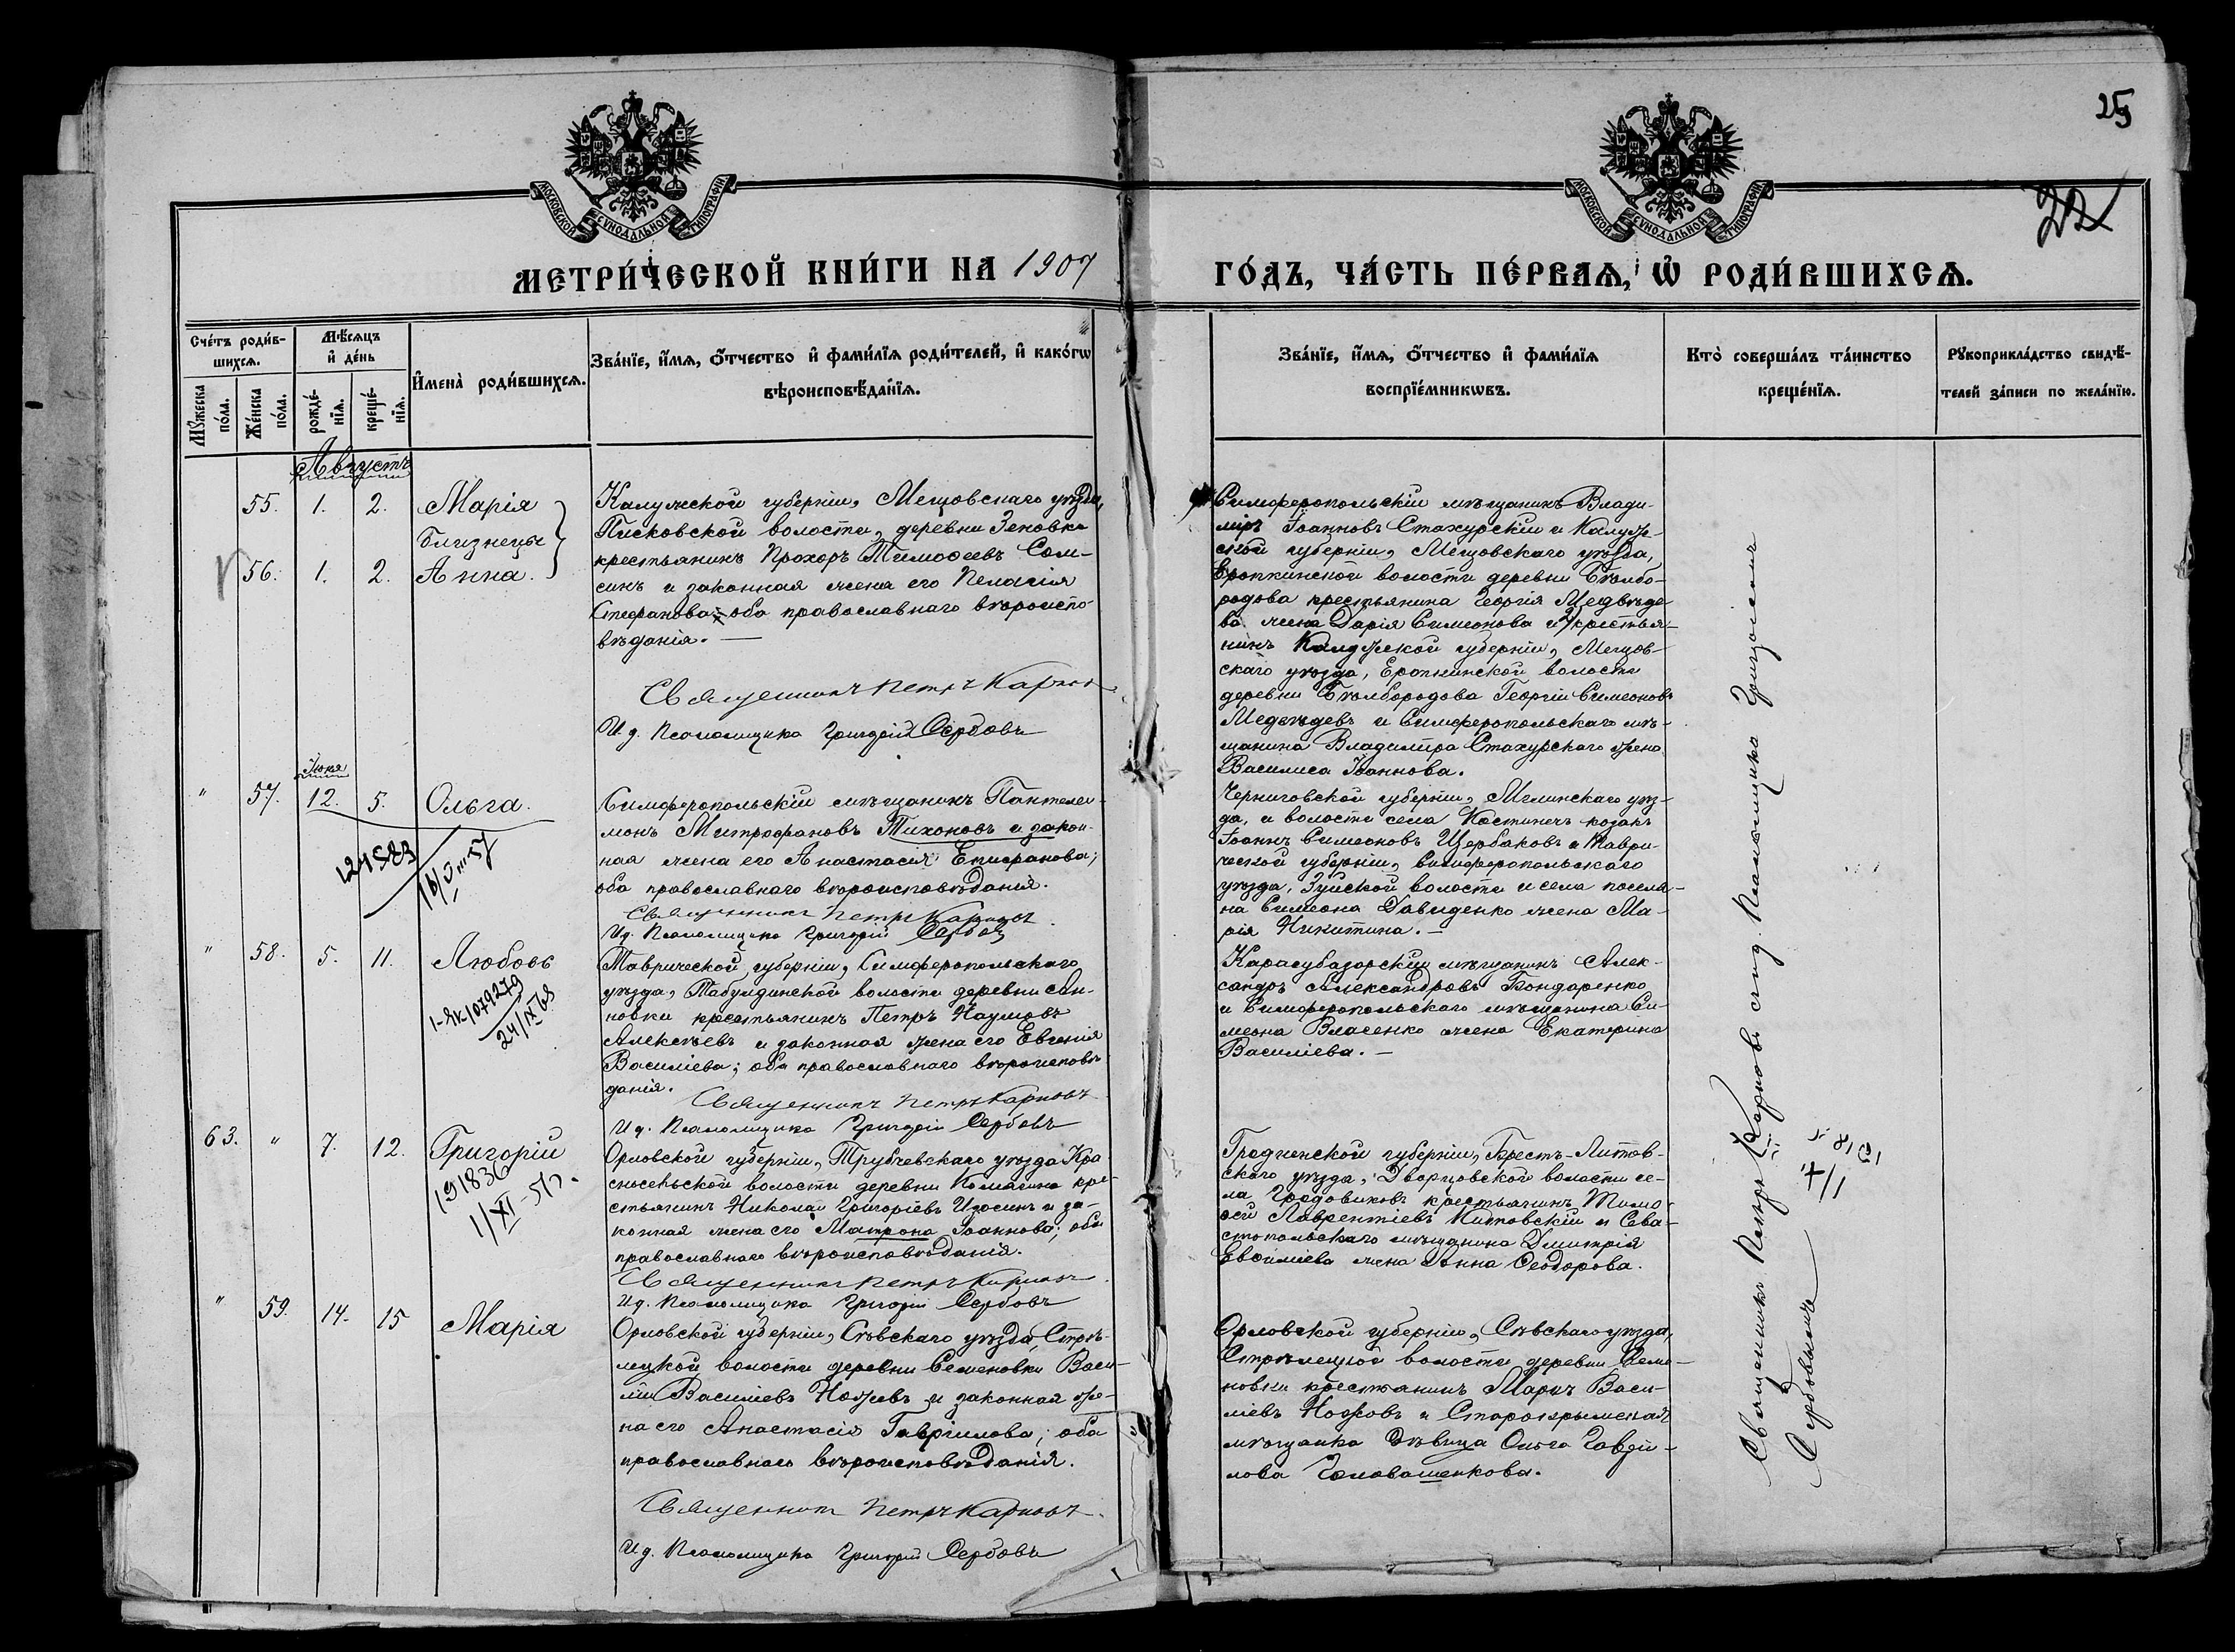 25
22
МОСКОВСКОЙ СѴНОДАЛЬНОЙ ТИПОГРАФІИ
МОСКОВСКОЙ СѴНОДАЛЬНОЙ ТИПОГРАФІИ
МЕТРИ́ЧЕСКОЙ КНИ́ГИ НА 1907
ГО́ДЪ, ЧА́СТЬ ПЕ́РВАѦ, Ѡ҆ РОДИ́ВШИХСѦ.
Сче́тъ роди́в-
шихсѧ.
Мѣ́сѧцъ
и҆ де́нь
Мꙋ́жеска
по́ла.
Же́нска
по́ла.
рожде́-
нїѧ.
креще́-
нїѧ.
И҆мена̀ роди́вшихсѧ.
Зва́нїе, и҆́мѧ, ѻ҆́тчество и҆ фами́лїѧ роди́телей, и҆ како́гѡ
вѣроисповѣ́данїѧ.
Зва́нїе, и҆́мѧ, ѻ҆́тчество и҆ фами́лїѧ
воспрїе́мникѡвъ.
Кто̀ соверша́лъ та́инство
креще́нїѧ.
Рꙋкоприкла́дство свидѣ́-
телей за́писи по жела́нїю.
Августъ
55. 1. 2. Марія
близнецы
56. 1. 2. Анна.
Калужской губерніи, Мещовскаго уѣзда,
волости, деревни Зеновки
крестьянинъ Прохоръ Тимоѳеевъ Сом-
синъ и законная жена его Пелагія
Стефанова; оба православнаго вѣроиспо-
вѣданія. —
Священникъ Петръ Карповъ
И д. Псаломщика Григорій Сербовъ
Симферопольскій мѣщанинъ Влади-
міръ Іоанновъ Стахурскій и Калуж-
ской губерніи, Мещовскаго уѣзда,
Еропкинской волости деревни Бѣлбо-
родова крестьянина Георгія Медвѣде-
ва жена Дарія Симеонова и 2/ крестья-
нинъ Калужской губерніи, Мещов-
скаго уѣзда, Еропкинской волости
деревни Бѣлбородова Георгій Симеоновъ
Медвѣдевъ и Симферопольскаго мѣ-
щанина Владиміра Стахурскаго жена
Василиса Іоаннова.
Іюня
" 57. 12. 5. Ольга.
121583
Симферопольскій мѣщанинъ Пантелеи-
монъ Митрофановъ Тихоновъ и закон-
ная жена его Анастасія Епифанова;
оба православнаго вѣроисповѣданія.
Священникъ Петръ Карповъ.
И д. Псаломщика Григорій Сербовъ
Черниговской губерніи, Мглинскаго уѣз-
да, и волости села Костиничъ козакъ
Іоаннъ Симеоновъ Щербаковъ и Таври-
ческой губерніи, Симферопольскаго
уѣзда, Зуйской волости и села поселя-
на Симеона Давиденко жена Ма-
рія Никитина. —
" 58. 5. 11. Любовь
24/IX 68
Таврической губерніи, Симферопольскаго
уѣзда, Табулдинской волости деревни Ан-
новки крестьянинъ Петръ Наумовъ
Алексѣевъ и законная жена его Евгенія
Василіева; оба православнаго вѣроисповѣ-
данія.
Священникъ Петръ Карповъ
И д. Псаломщика Григорій Сербовъ
Карасубазарскій мѣщанинъ Алек-
сандръ Александровъ Бондаренко
и Симферопольскаго мѣщанина Си-
меона Власенко жена Екатерина
Василіева. —
63. " 7. 12. Григорій
191836
1/XI-57г.
Орловской губерніи, Трубчевскаго уѣзда Кра-
сносельской волости деревни Комягина кре-
стьянинъ Николай Григоріевъ Изосинъ и за-
конная жена его Матрона Іоаннова; оба
православнаго вѣроисповѣданія.
Священникъ Петръ Карповъ.
И д. Псаломщика Григорій Сербовъ
Гродненской губерніи, Брестъ-Литов-
скаго уѣзда, Дворцовской волости се-
ла крестьянинъ Тимо-
ѳей Лаврентіевъ Китовскій и Сева-
стопольскаго мѣщанина Дмитрія
Евѳиміева жена Анна Ѳеодорова.
" 59. 14. 15 Марія
Орловской губерніи, Сѣвскаго уѣзда, Стрѣ-
лецкой волости деревни Семеновки Васи-
лій Василіевъ Ножовъ и законная же-
на его Анастасія Гавріилова; оба
православнаго вѣроисповѣданія.
Священникъ Петръ Карповъ.
И д. Псаломщика Григорій Сербовъ
Орловской губерніи, Сѣвскаго уѣзда,
Стрѣлецкой волости деревни Семе-
новки крестьянинъ Маркъ Васи-
ліевъ Ножовъ и Старокрымская
мѣщанка дѣвица Ольга Гаврі-
лова Головашенкова.
Священникъ Петръ Карповъ съ и д. Псаломщика Григоріемъ
Сербовымъ